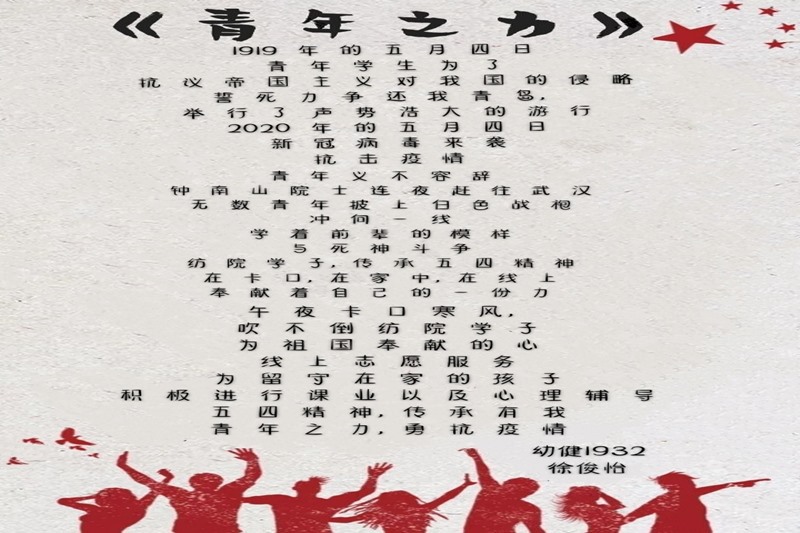 《青年之力》
1919年的五月四日
青年学生为了
抗议帝国主义对我国的侵略
誓死力争还我青岛,
举行了声势浩大的游行
2020年的五月四日
新冠病毒来袭
抗击疫情
青年义不容辞
钟南山院士连夜赶往武汉
无数青年披上白色战袍
冲向一线
学着前辈的模样
与死神斗争
纺院学子,传承五四精神
在卡口,在家中,在线上
奉献着自己的一份力
午夜卡口寒风,
吹不倒纺院学子
为祖国奉献的心
线上志愿服务
为留守在家的孩子
积极进行课业以及心理辅导
五四精神,传承有我
青年之力,勇抗疫情
幼健1932
徐俊怡